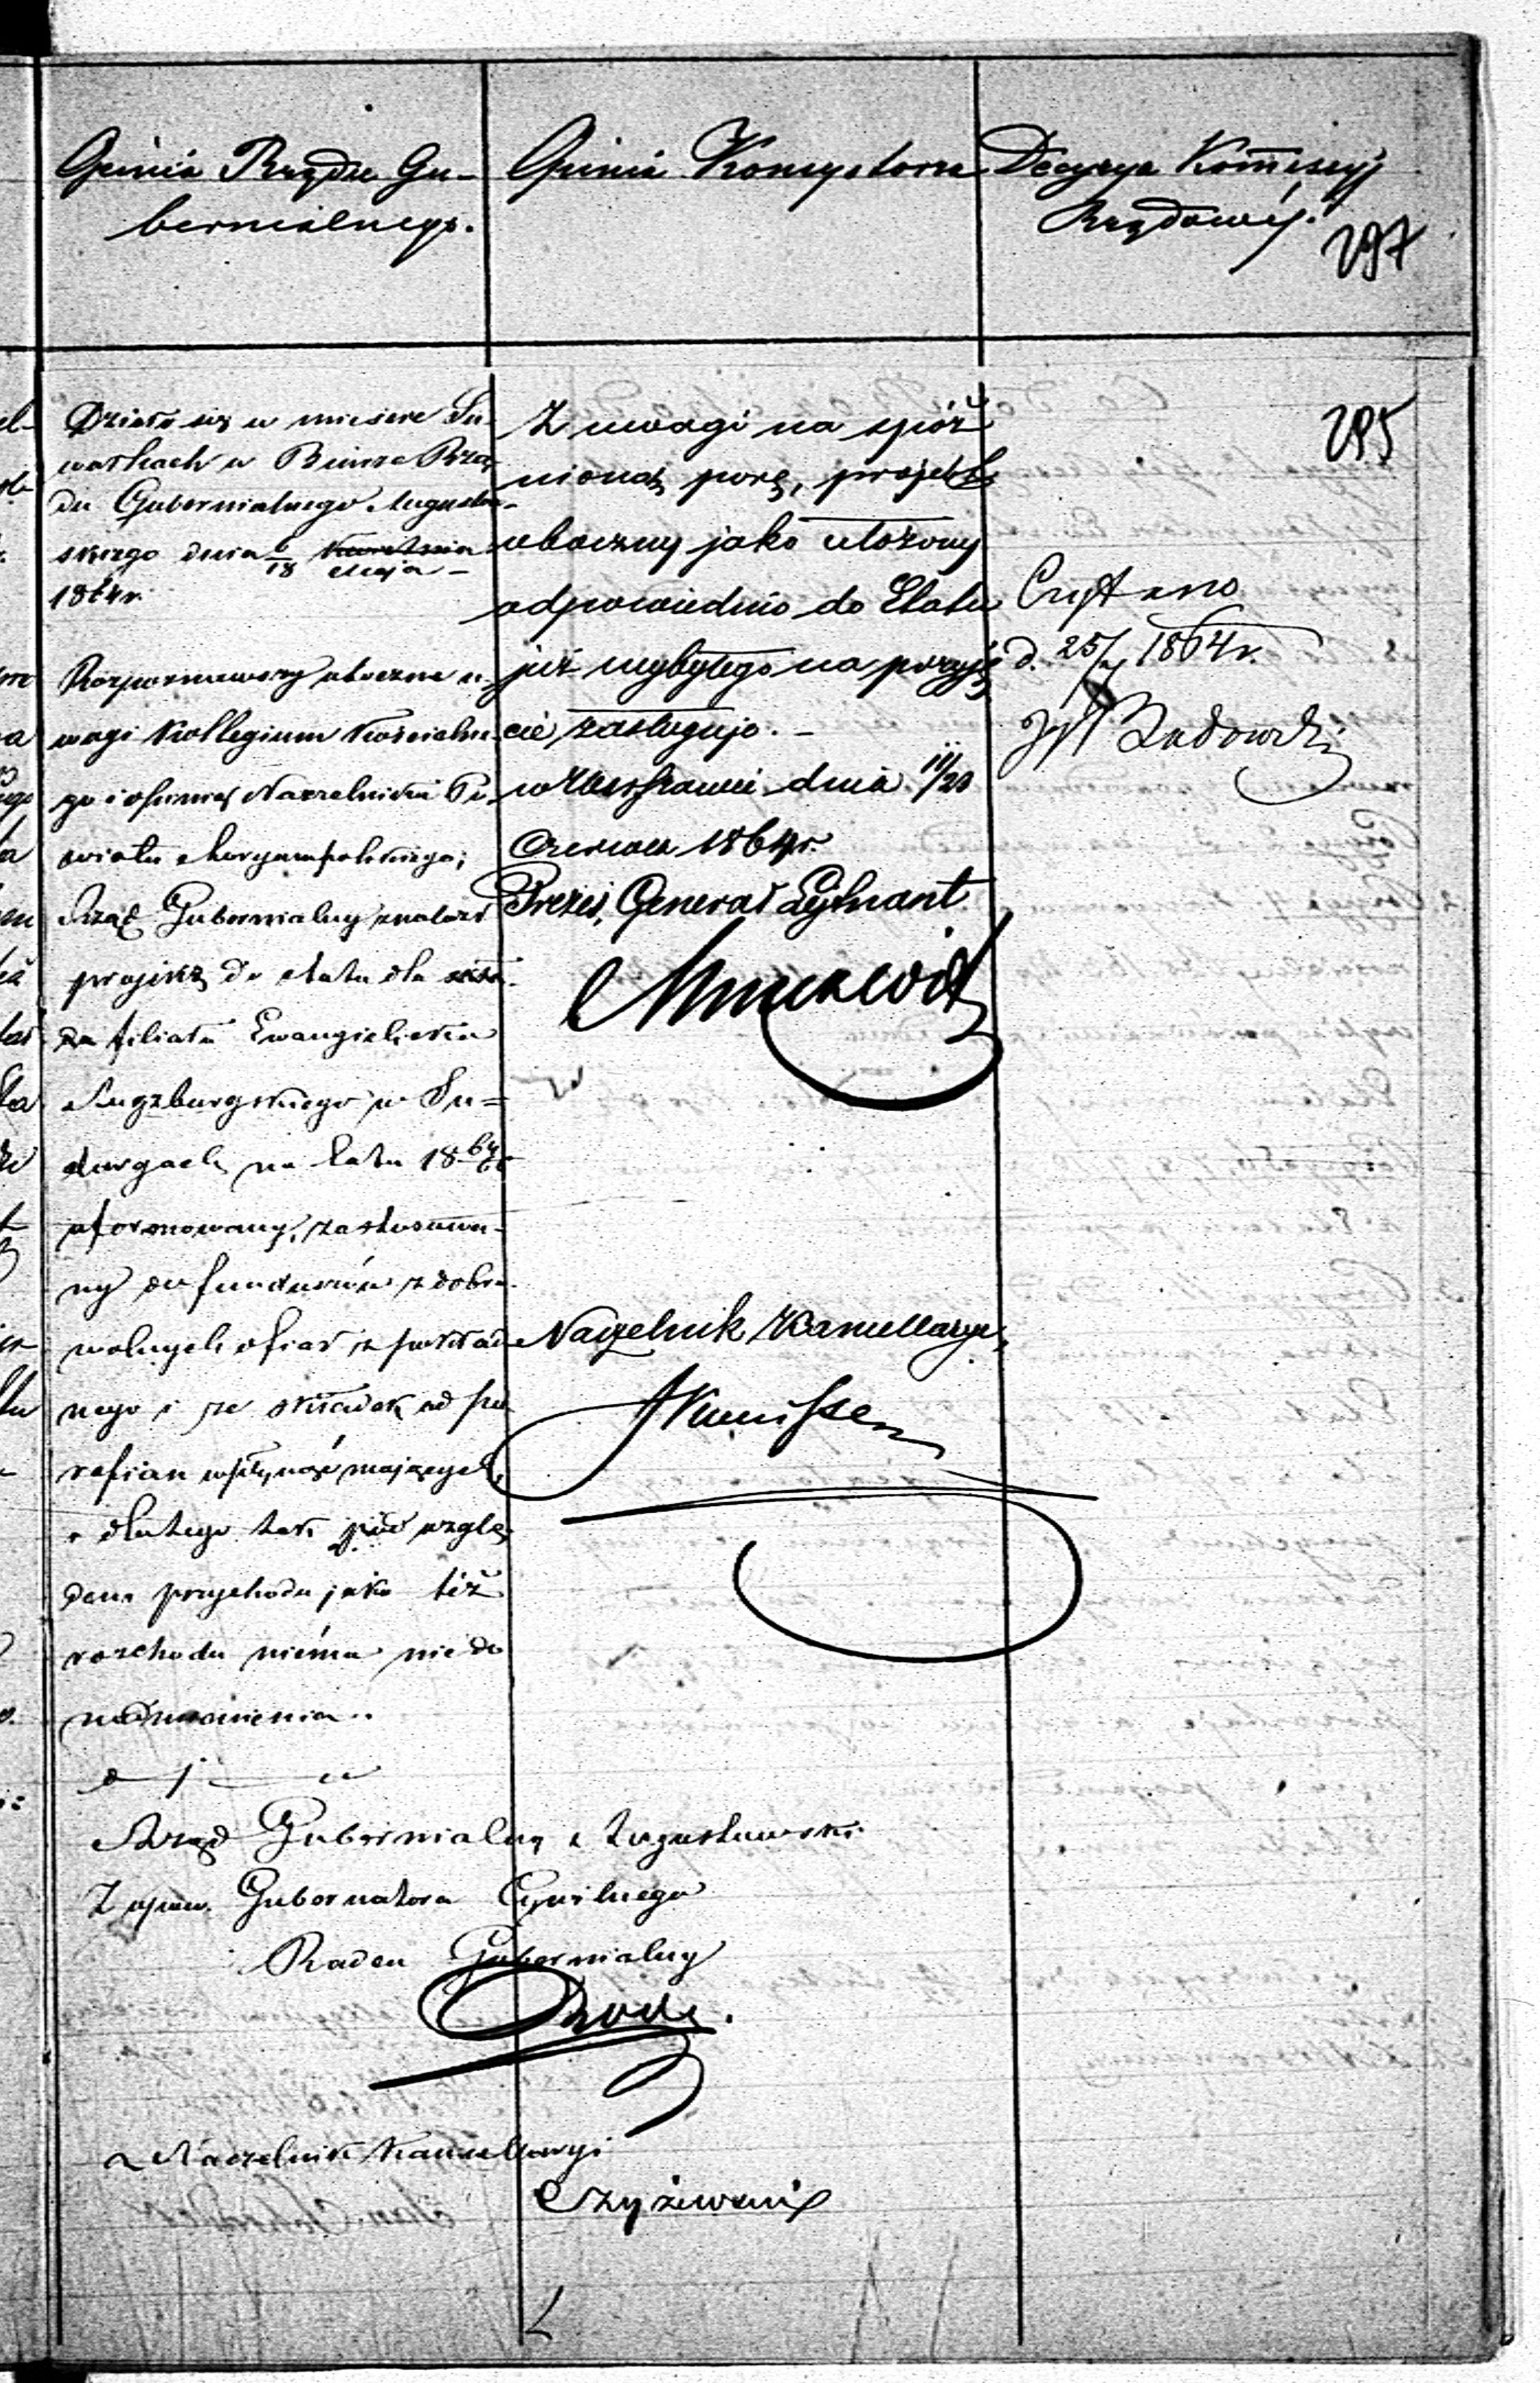 Opinia Rządu Gu-
bernialnego.
Opinia Konsystorza
Decyzya Kommissyj
Rządowéj.
297
295
Działo się w mieście Su-
wałkach w Biurze Rzą-
du Gubernialnego Augustow-
skiego dnia 6/18 Kwietnia Maja
1864 r.
Rozpoznawszy uboczne u-
wagi Kollegium Kościelne-
go i opinią Naczelnika Po-
wiatu Maryampolskiego;
Rząd Gubernialny znalazł
projekt do etatu dla
filiału Ewangielicko
Augzburgskiego w Su-
dargach na lata 1864/66
uformowany, zastosowa-
ny do funduszów z dobro-
wolnych ofiar z pokład-
nego i ze składek od pa-
rafian wpłynąć mających,
a dlatego tak pod wzglę-
dem przychodu jako też
rozchodu niéma nic do
nadmienienia..
Rząd Gubernialny Augustowski
Z upow. Gubernatora Cywilnego
Radca Gubernialny
Naczelnik Kancellaryi
Czyżewski
Z uwagi na spóź
nioną porę, projekt
uboczny jako ułożony
odpowiednio do Etatu
już ubyłego na przyję
cie zasługuje. –
w Warszawie dnia 11/23
Czerwca 1864 r.
Prezes, Generał Lejtnant
Naczelnik Kancellaryi,
Czytano
d. 25/7 1864 r.